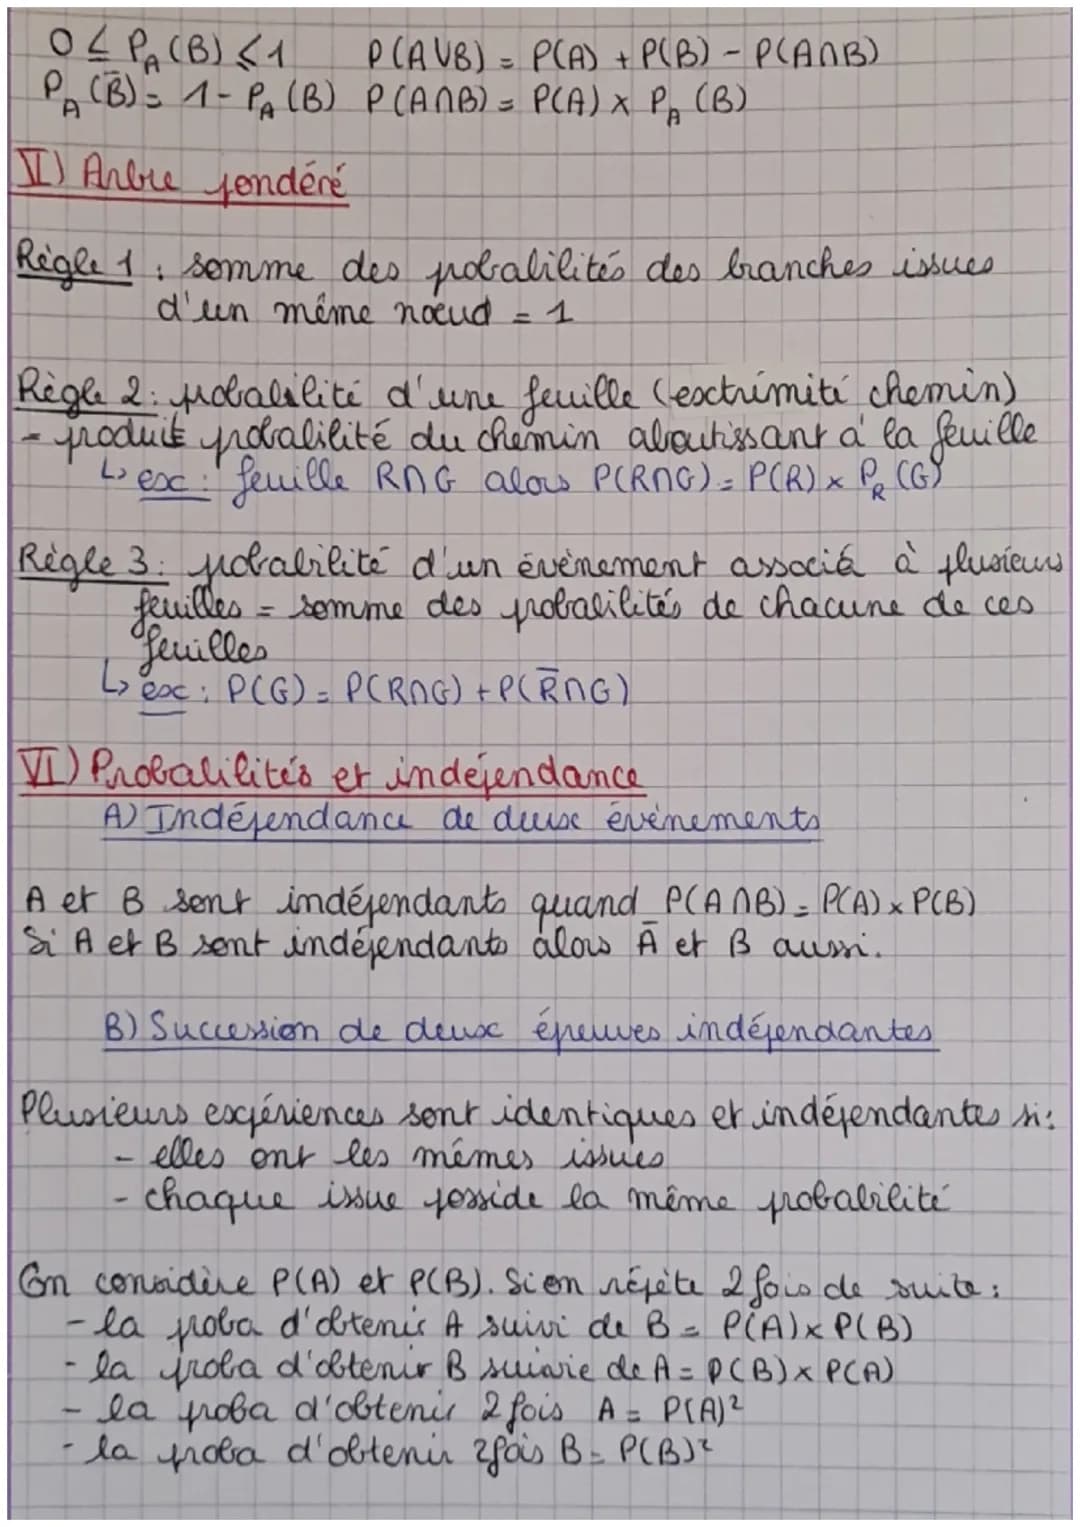 0 ≤ P_A(B) ≤ 1 P(A∪B) = P(A) + P(B) - P(A∩B)
P_A(B̄) = 1 - P_A(B) P(A∩B) = P(A) × P_A(B)
V) Arbre pondéré
Règle 1 : somme des probabilités des branches issues
d'un même nœud = 1
Règle 2 : probabilité d'une feuille (extrimité chemin)
= produit probabilité du chemin aboutissant à la feuille
↳ ex : feuille R∩G alors P(R∩G) = P(R) × P_R(G)
Règle 3 : probabilité d'un évènement associé à plusieurs
feuilles = somme des probabilités de chacune de ces
feuilles
↳ ex : P(G) = P(R∩G) + P(R̄∩G)
VI) Probabilités et indépendance
A) Indépendance de deux évènements
A et B sont indépendants quand P(A∩B) = P(A) × P(B)
Si A et B sont indépendants alors Ā et B aussi.
B) Succession de deux épreuves indépendantes
Plusieurs expériences sont identiques et indépendantes si :
- elles ont les mêmes issues
- chaque issue posside la même probabilité
On considère P(A) et P(B). Si on répète 2 fois de suite :
- la proba d'obtenir A suivi de B = P(A) × P(B)
- la proba d'obtenir B suivie de A = P(B) × P(A)
- la proba d'obtenir 2 fois A = P(A)²
- la proba d'obtenir 2 fois B = P(B)²